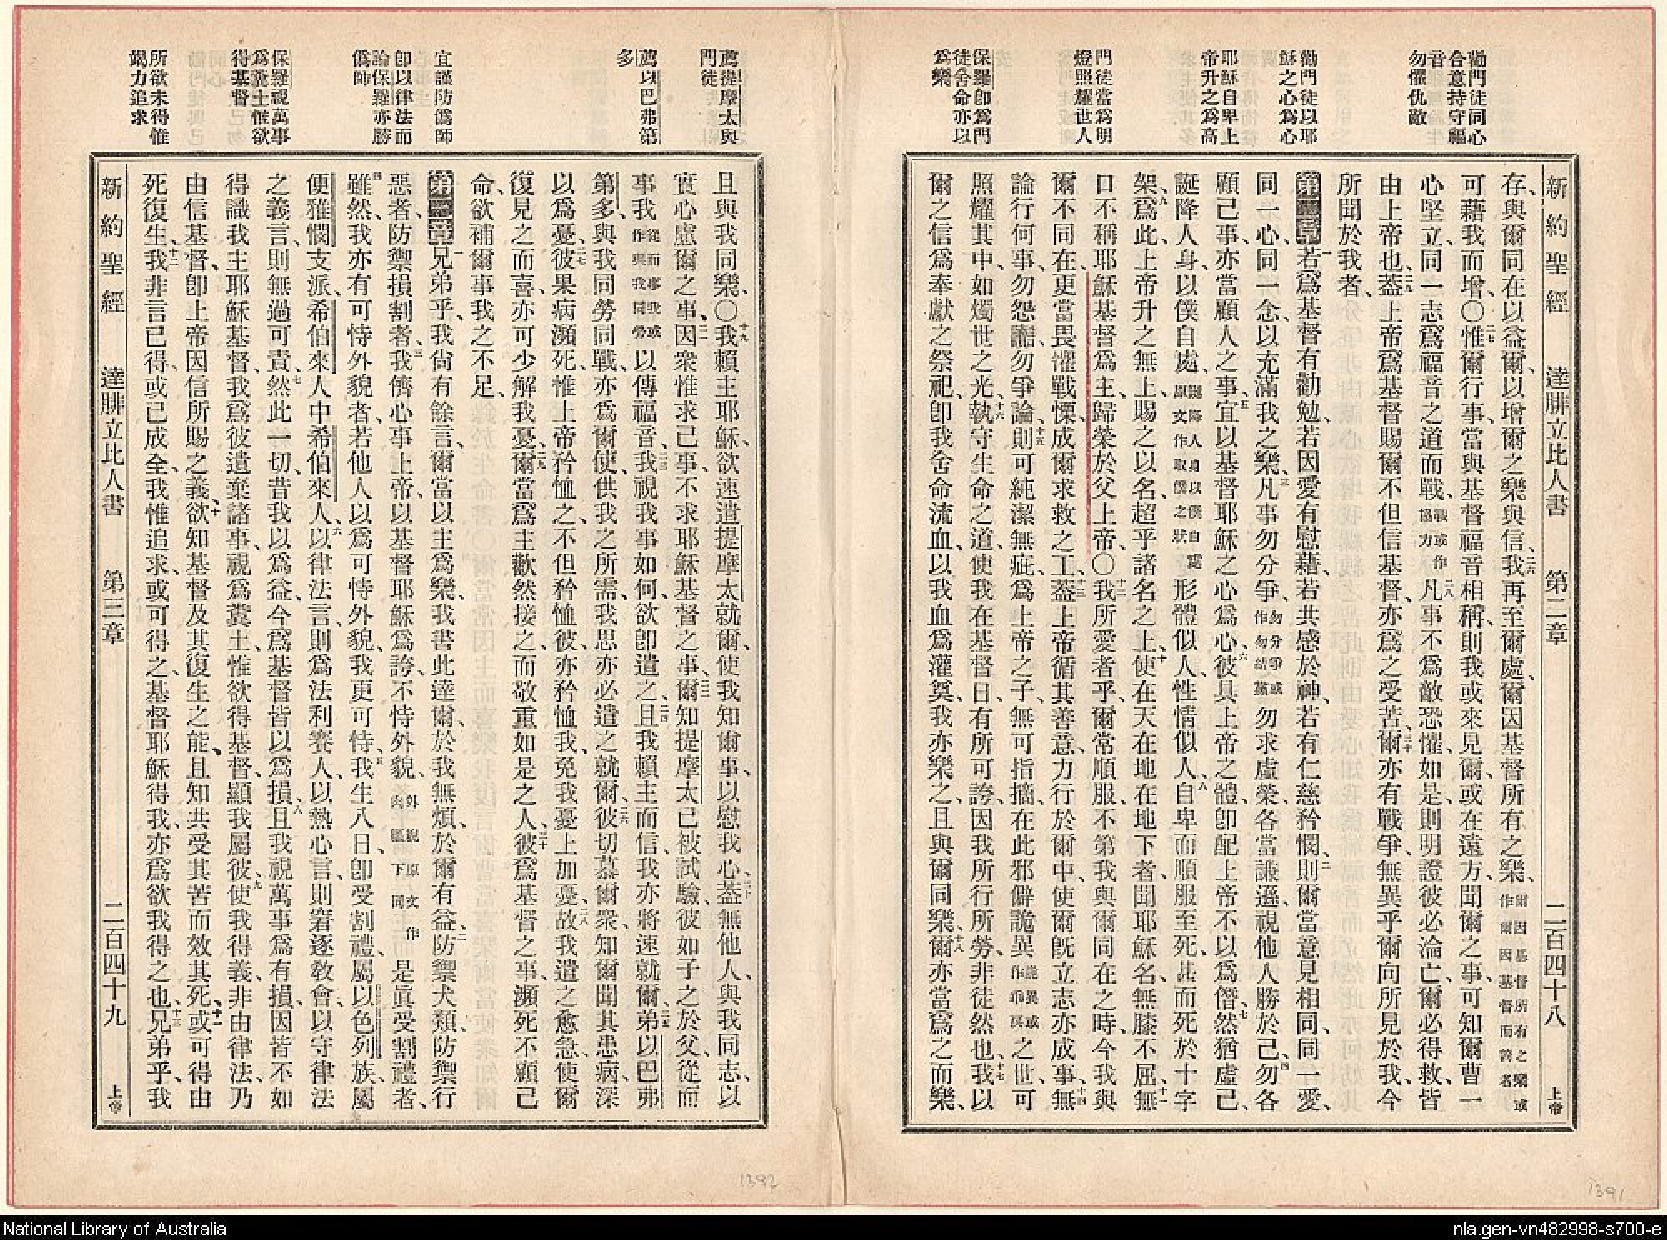 勸門徒同心
合意持守福
音
勿懼仇敵
勸門徒以耶
穌之心爲心
耶穌自卑上
帝升之爲高
門徒當爲明
燈照耀世人
保羅卽爲門
徒舍命亦以
爲樂
新約聖經 達腓立比人書 第二章 二百四十八 上帝
存、與爾同在、以益爾、以增爾之樂與信、二六我再至爾處、爾因基督所有之樂、爾因基督所有之樂或作爾因基督而誇者
可藉我而增、〇二七惟爾行事、當與基督福音相稱、則我或來見爾、或在遠方聞爾之事、可知爾曹一
心堅立、同一志爲福音之道而戰、戰或作協力二八凡事不爲敵恐懼、如是、則明證彼必淪亡、爾必得救、皆
由上帝也、二九蓋上帝爲基督賜爾不但信基督、亦爲之受苦、三十爾亦有戰爭、無異乎爾向所見於我、今
所聞於我者、
第二章一若爲基督有勸勉、若因愛有慰藉、若共感於神、若有仁慈矜憫、二則爾當意見相同、同一愛、
同一心、同一念、以充滿我之樂、三凡事勿分爭、勿分爭或作勿結黨勿求虛榮、各當謙遜、視他人勝於己、四勿各
顧己事、亦當顧人之事、五宜以基督耶穌之心爲心、六彼具上帝之體、卽配上帝、不以爲僭、七然猶虛己、
誕降人身、以僕自處、誕降人身以僕自處原文作取僕之狀形體似人、性情似人、八自卑而順服至死、甚而死於十字
架、九爲此上帝升之無上、賜之以名、超乎諸名之上、十使在天在地在地下者、聞耶穌名、無膝不屈、十一無
口不稱耶穌基督爲主、歸榮於父上帝、〇十二我所愛者乎、爾常順服、不第我與爾同在之時、今我與
爾不同在、更當畏懼戰慄、成爾求救之工、十三蓋上帝循其善意、力行於爾中、使爾旣立志、亦成事、十四無
論行何事、勿怨讟、勿爭論、十五則可純潔無疵、爲上帝之子、無可指摘、在此邪僻詭異詭異或作乖戾之世、可
照耀其中、如燭世之光、十六執守生命之道、使我在基督日、有所可誇、因我所行所勞、非徒然也、十七我以
爾之信爲奉獻之祭祀、卽我舍命流血、以我血爲灌奠、我亦樂之、且與爾同樂、十八爾亦當爲之而樂、
薦提摩太與
門徒
薦以巴弗第
多
宜謹防僞師
卽以律法而
論保羅亦勝
僞師
保羅視萬事
爲糞土惟欲
得基督
所欲未得惟
竭力追求
且與我同樂、〇十九我賴主耶穌、欲速遣提摩太就爾、使我知爾事、以慰我心、二十蓋無他人、與我同志、以
實心慮爾之事、二一因衆惟求己事、不求耶穌基督之事、二二爾知提摩太已被試驗、彼如子之於父、從而
事我、從而事我或作與我同勞以傳福音、二三我視我事如何、欲卽遣之、二四且我賴主而信、我亦將速就爾、二五弟以巴弗
第多、與我同勞同戰、亦爲爾使、供我之所需、我思亦必遣之就爾、二六彼切慕爾衆、知爾聞其患病、深
以爲憂、二七彼果病瀕死、惟上帝矜恤之、不但矜恤彼、亦矜恤我、免我憂上加憂、二八故我遣之愈急、使爾
復見之而喜、亦可少解我憂、二九爾當爲主歡然接之、而敬重如是之人、三十彼爲基督之事瀕死、不顧己
命、欲補爾事我之不足、
第三章一兄弟乎、我尙有餘言、爾當以主爲樂、我書此達爾、於我無煩、於爾有益、二防禦犬類、防禦行
惡者、防禦損割者、三我儕心事上帝、以基督耶穌爲誇、不恃外貌、外貌原文作肉軀下同是眞受割禮者、
四雖然、我亦有可恃外貌者、若他人以爲可恃外貌、我更可恃、五我生八日、卽受割禮、屬以色列族、屬
便雅憫支派、希伯來人中希伯來人、以律法言、則爲法利賽人、六以熱心言、則窘逐敎會、以守律法
之義言、則無過可責、七然此一切、昔我以爲益、今爲基督皆以爲損、八且我視萬事爲有損、因皆不如
得識我主耶穌基督、我爲彼遺棄諸事、視爲糞土、惟欲得基督、九顯我屬彼、使我得義、非由律法、乃
由信基督、卽上帝因信所賜之義、十欲知基督及其復生之能、且知共受其苦、而效其死、十一或可得由
死復生、十二我非言已得、或已成全、我惟追求、或可得之、基督耶穌得我、亦爲欲我得之也、十三兄弟乎、我
新約聖經 達腓立比人書 第三章 二百四十九 上帝
1392
1391
National Library of Australia
nla.gen-vn482998-s700-e